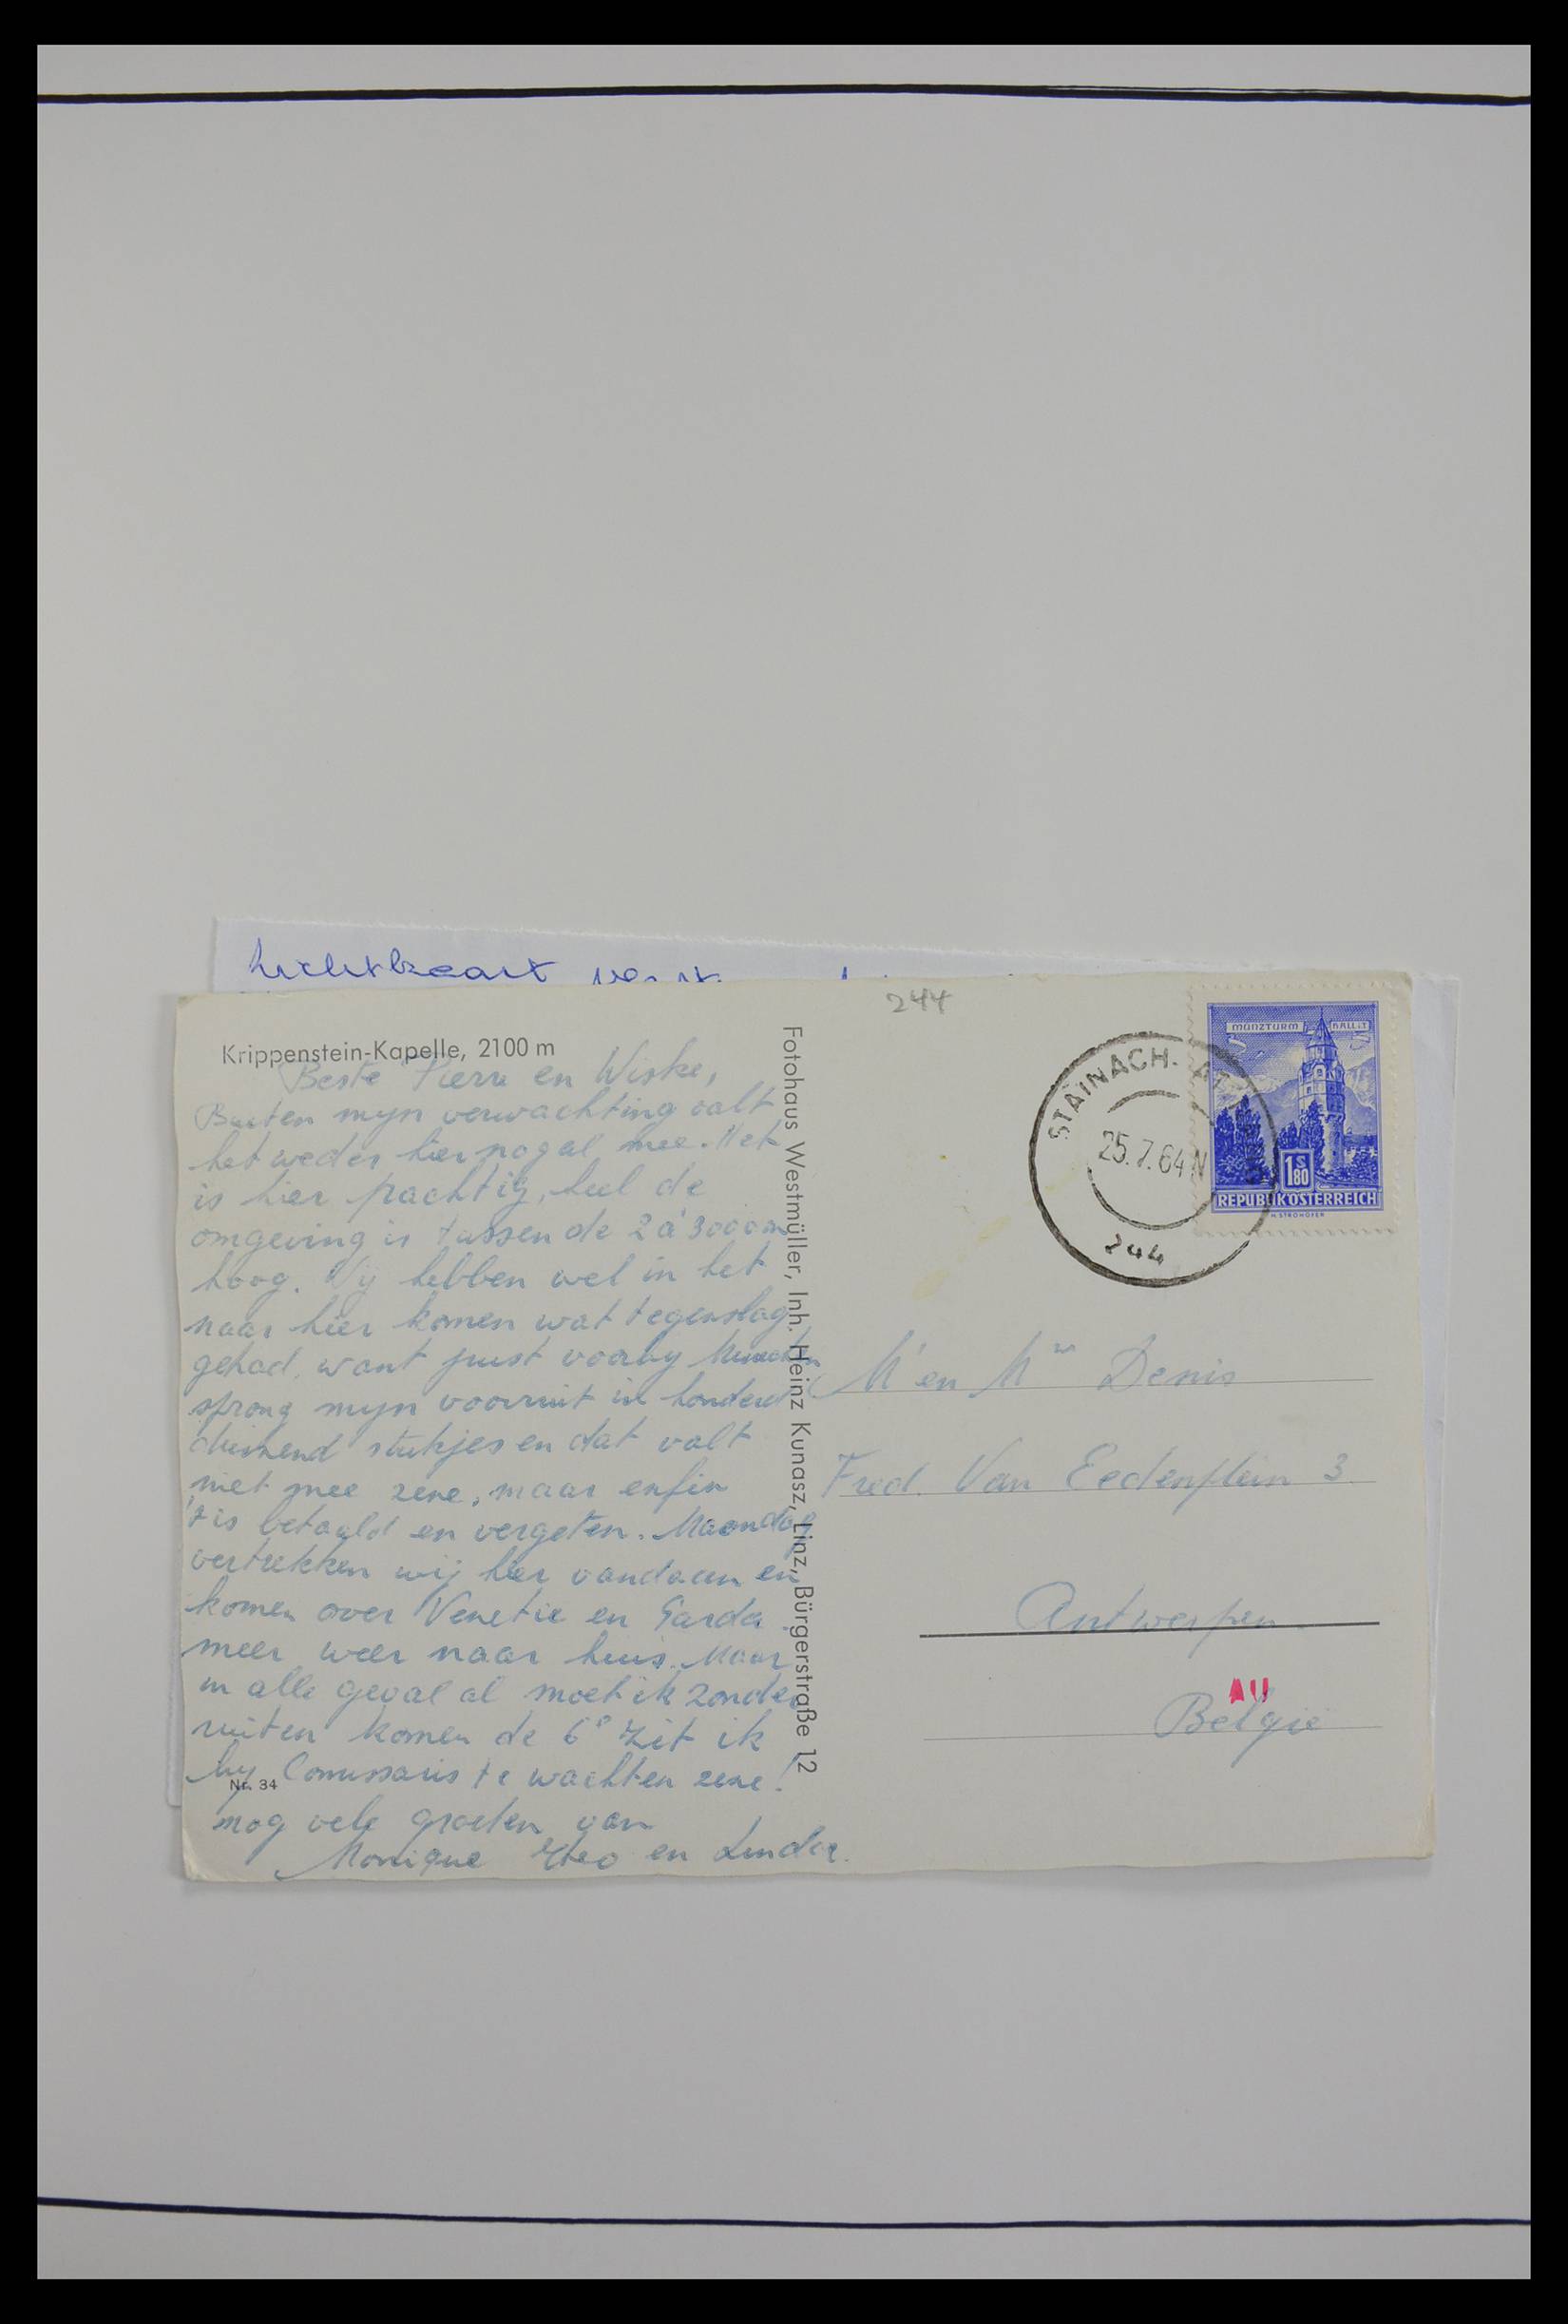 244
Krippenstein-Kapelle, 2100 m
Beste Pierre en Wiske,
Buiten myn verwachting valt
het weder hier nogal mee. Het
is hier prachtig, heel de
omgeving is tussen de 2 à 3000 m
hoog. Wij hebben wel in het
naar hier komen wat tegenslag
gehad, want juist voorby
sprong myn voorruit in honderd
duizend stukjes en dat valt
niet mee zene, maar enfin
't is betaald en vergeten. Maandag
vertrekken wij hier vandaan en
komen over Venetie en Garda
meer weer naar huis. Maar
in alle geval al moet ik zonder
ruiten komen de 6° zit ik
by Comissaris te wachten zene!
Nr. 34
nog vele groeten van
Monique en Linda.
Fotohaus Westmüller, Inh. Heinz Kunasz, Linz, Bürgerstraße 12
STAINACH-
25.7.64
244
MÜNZTURM HALL i.T.
S
1.80
REPUBLIK ÖSTERREICH
H. STROHOFER
Mr en Mw Denis
Fred. Van Eedenplein 3
Antwerpen
AU
België